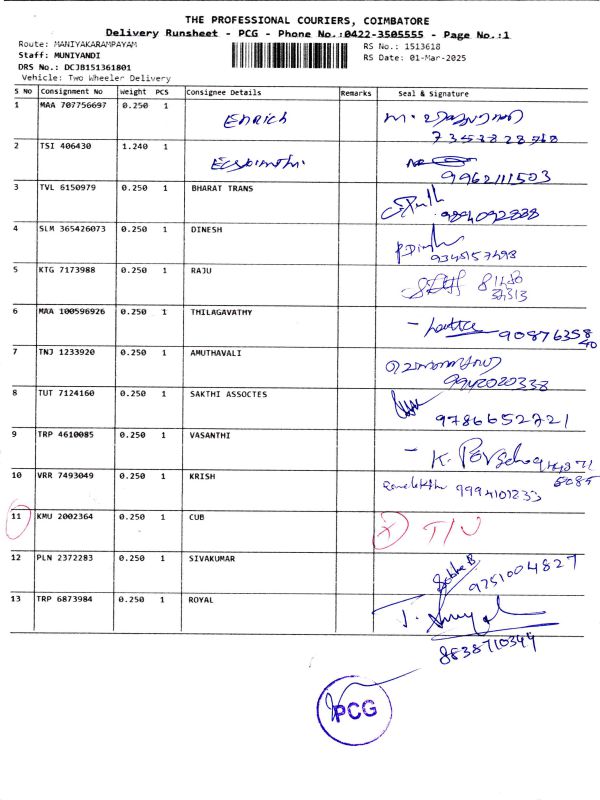 THE PROFESSIONAL COURIERS, COIMBATORE
Delivery Runsheet - PCG - Phone No.:0422-3505555 - Page No.:1
Route: MANIYAKARAMPAYAM
RS No.: 1513618
Staff: MUNIYANDI
RS Date: 01-Mar-2025
DRS No.: DCJB151361801
Vehicle: Two Wheeler Delivery
S NO Consignment No Weight PCS Consignee Details Remarks Seal & Signature
1 MAA 707756697 0.250 1 Enrich
2 TSI 406430 1.240 1
9962111503
3 TVL 6150979 0.250 1 BHARAT TRANS
4 SLM 365426073 0.250 1 DINESH
5 KTG 7173988 0.250 1 RAJU
6 MAA 100596926 0.250 1 THILAGAVATHY
90876358
40
7 TNJ 1233920 0.250 1 AMUTHAVALI
9942020338
8 TUT 7124160 0.250 1 SAKTHI ASSOCTES
9786652721
9 TRP 4610085 0.250 1 VASANTHI
10 VRR 7493049 0.250 1 KRISH
9994101233
11 KMU 2002364 0.250 1 CUB
12 PLN 2372283 0.250 1 SIVAKUMAR
9751004827
13 TRP 6873984 0.250 1 ROYAL
8838710344
PCG